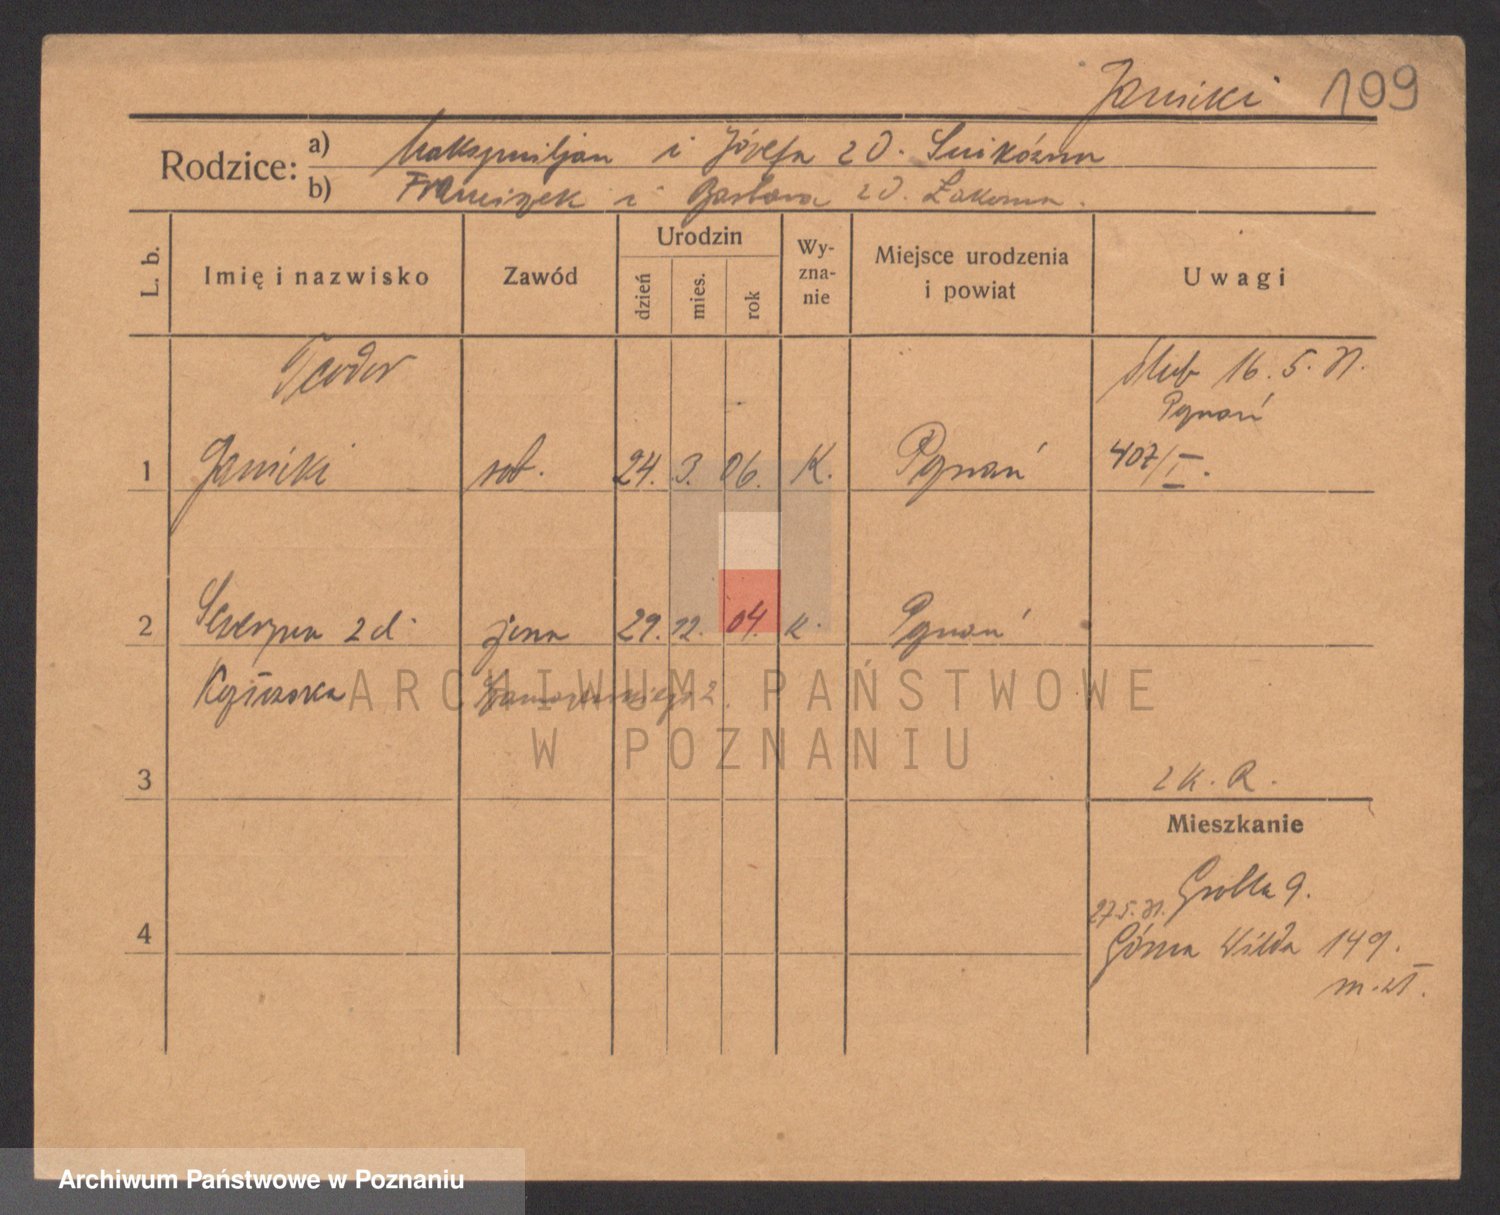 Janicki 199
Rodzice: a) Maksymiljan i Józefa z d.
b) Franciszek i Barbara z d.
L. b.
Imię i nazwisko
Zawód
Urodzin
dzień
mies.
rok
Wy-
zna-
nie
Miejsce urodzenia
i powiat
Uwagi
Teodor
ślub 16. 5. 31.
Poznań
1 Janicki rob. 24. 3. 06. K. Poznań 407/I.
2 Seweryna z d. żona 29. 12. 04. K. Poznań
ARCHIWUM PAŃSTWOWE
W POZNANIU
3 2 K. R.
Mieszkanie
Grobla 9.
27.5.31.
4 Górna Wilda 149.
Archiwum Państwowe w Poznaniu